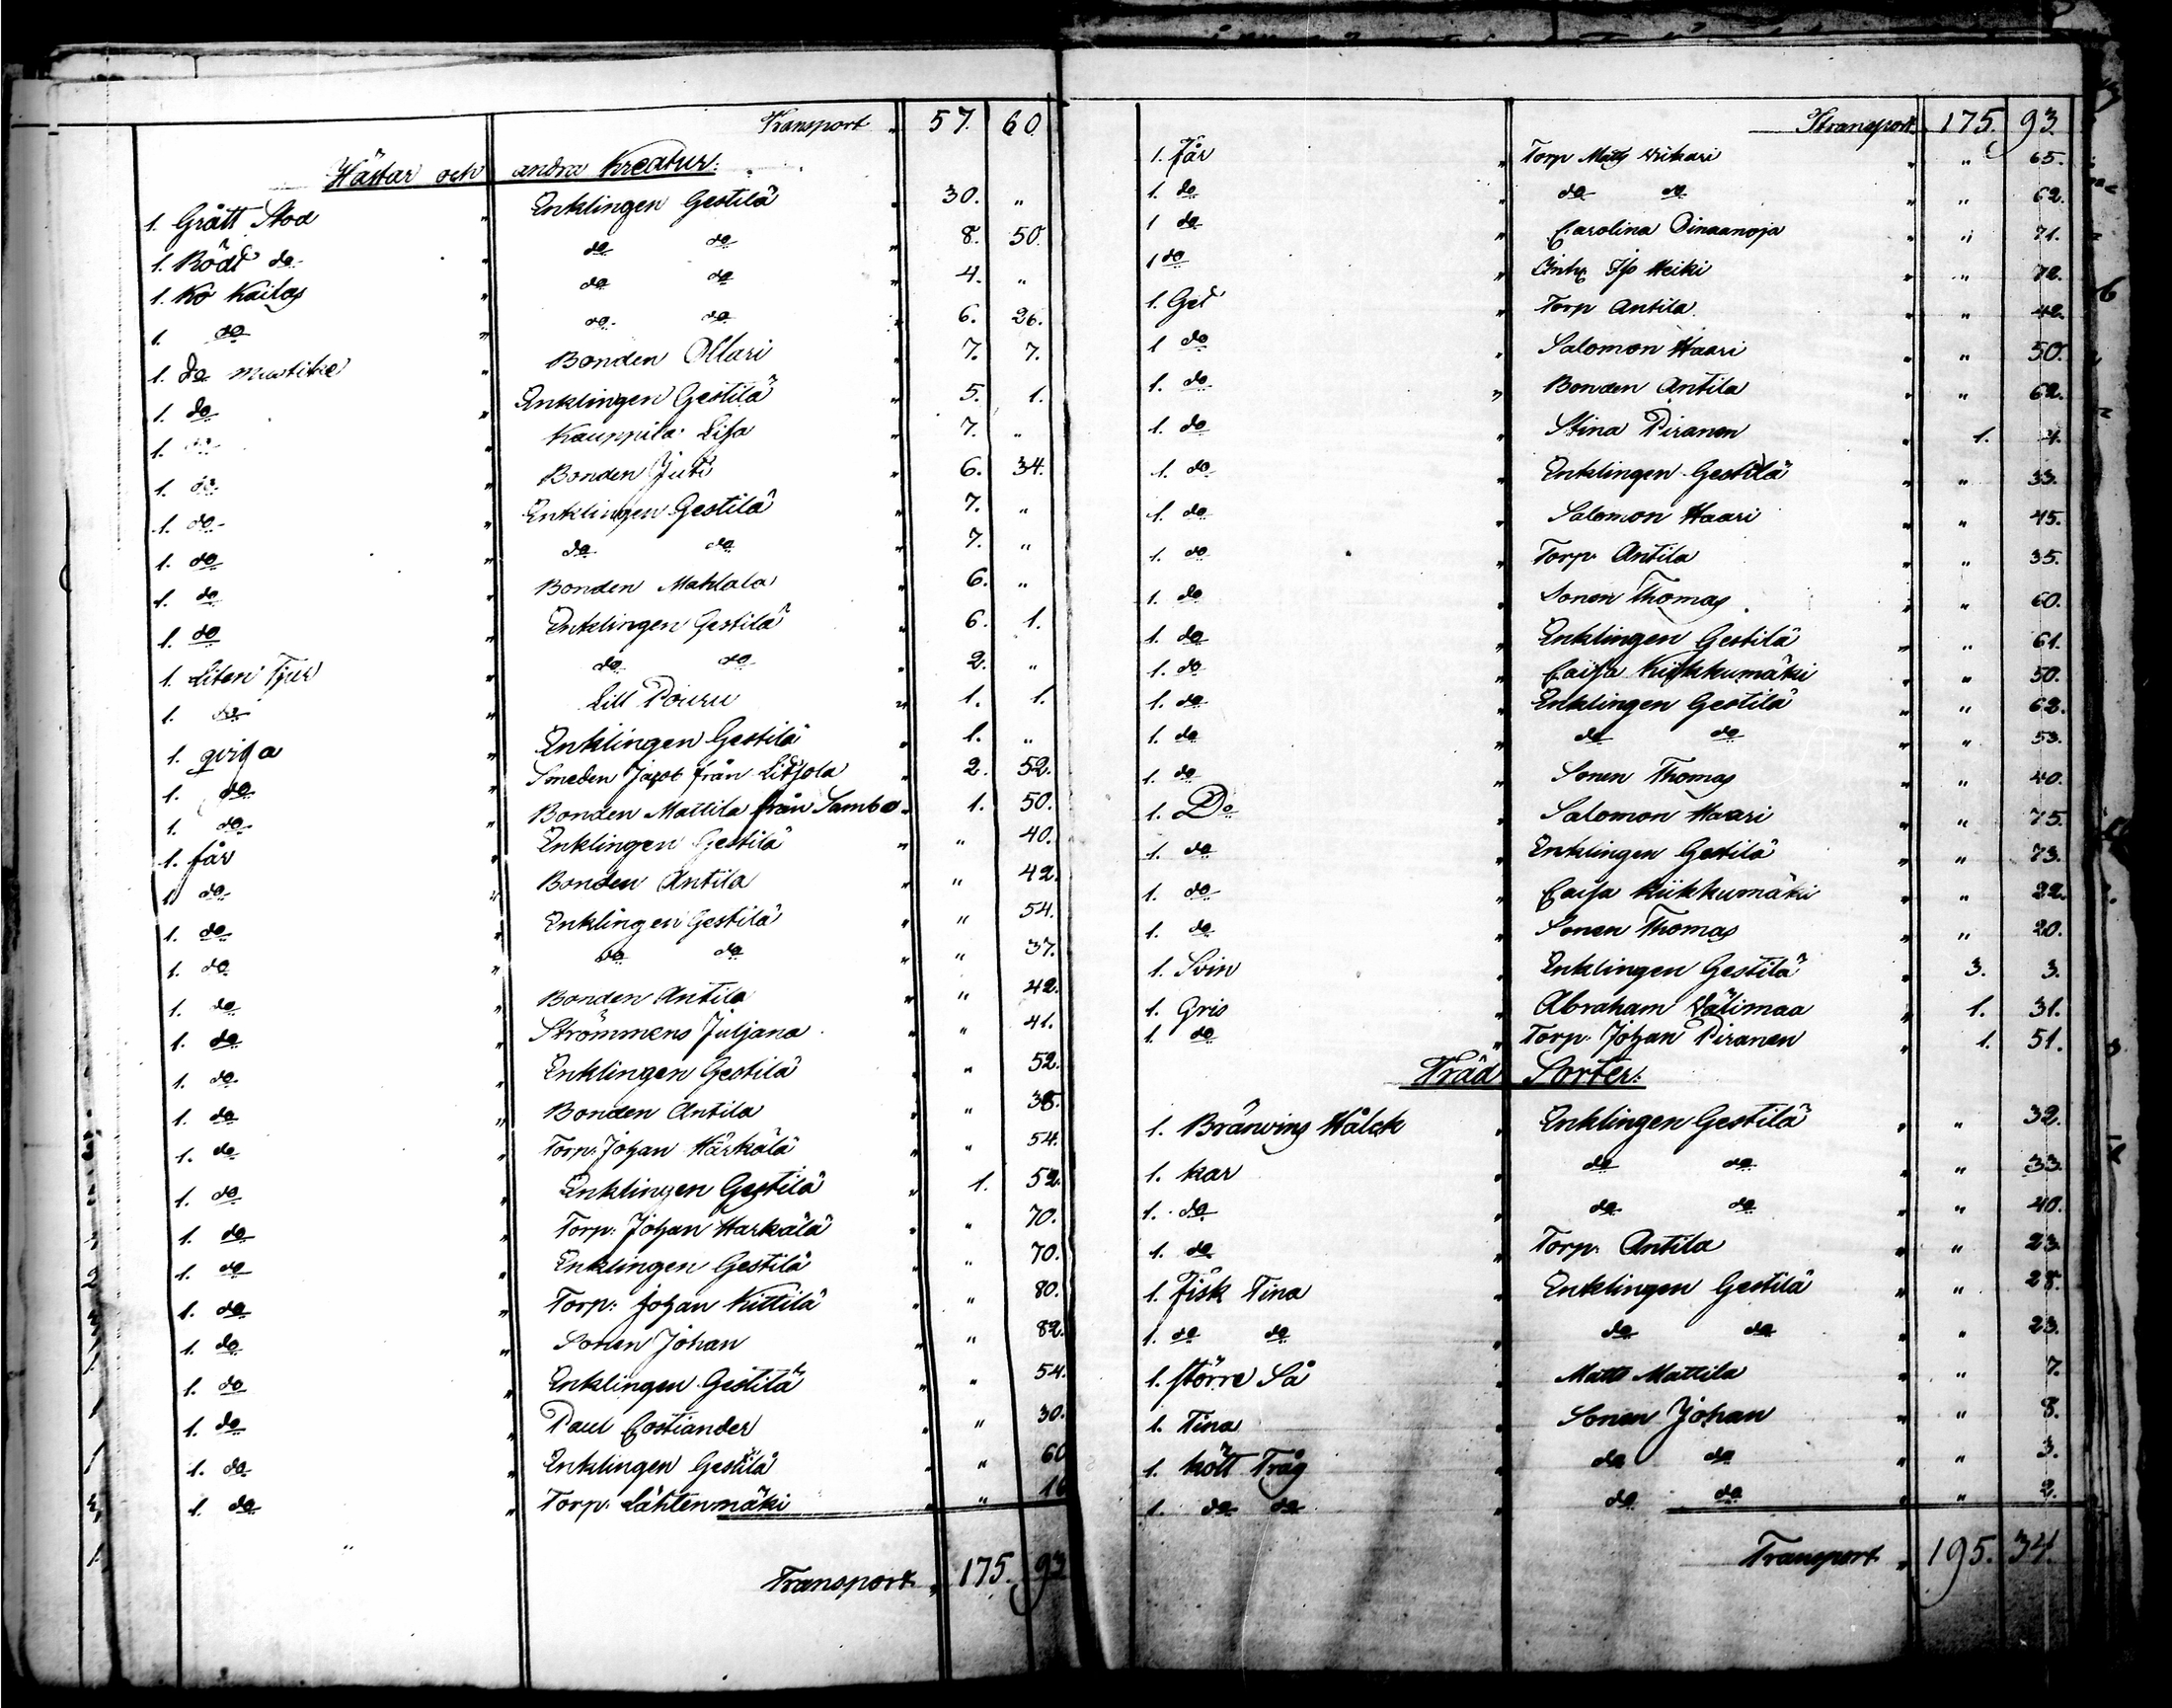 Transport „ 57. 60.
Hästar och andra Kreatur:
1. Grått Stod „ Enklingen Gestilä 30. „
1. Rödt do „ do do „ 8. 50.
1. Ko Kailas „ do do 4. „
1. do „ do do „ 6. 26.
1. do mustikie „ Bonden Ollari „ 7. 7.
1. do „ Enklingen Gestilä „ 5. 1.
1. do „ Kauppila Lisa „ 7. „
1. do „ Bonden Juti „ 6. 34.
1. do „ Enklingen Gestilä „ 7. „
1. do „ do do „ 7. „
1. do „ Bonden Mahlala „ 6. „
1. do „ Enklingen Gestilä „ 6. 1.
1. Liten Tjur „ do do „ 2. „
1. do „ Lill Pouru „ 1. 1.
1. qviga „ Enklingen Gestilä „ 1. „
1. do „ Smeden Jacob från „ 2. 52.
1. do „ Bonden Mattila från Sambo „ 1. 50.
1. får „ Enklingen Gestilä „ „ 40.
1. do „ Bonden Antila „ „ 42.
1. do „ Enklingen Gestilä „ „ 54.
1. do „ do do „ „ 37.
1. do „ Bonden Antila „ „ 42.
1. do „ Strömmens Juljana „ „ 41.
1. do „ Enklingen Gestilä „ „ 52.
1. do „ Bonden Antila „ „
1. do „ Torp: Johan Härkälä „ „ 54.
1. do „ Enklingen Gestilä „ 1. 52.
1. do „ Torp: Johan Harkälä „ „ 70.
1. do „ Enklingen Gestilä „ „ 70.
1. do „ Torp: Johan Kittilä „ „ 80.
1. do „ Sonen Johan „ „ 82.
1. do „ Enklingen Gestilä „ „ 54.
1. do „ Paul Costiander „ „ 30.
1. do „ Enklingen Gestilä „ „ 60
1. do „ Torp: Lähtenmäki „ „ 16
Transport „ 175. 93
Transport 175. 93.
1. får „ Torp Matts Wikari „ „ 65.
1. do „ do do „ „ 62.
1 do „ Carolina „ „ 71.
1 do „ Heiki „ „ 72.
1. Get „ Torp Antila „ „ 42.
1 do „ Salomon Haari „ „ 50.
1. do „ Bonden Antila „ „ 62.
1. do „ Stina Piranen „ 1. 4.
1. do „ Enklingen Gestilä „ „ 33.
1. do „ Salomon Haari „ „ 45.
1. do „ Torp Antila „ „ 35.
1. do „ Sonen Thomas „ „ 60.
1. do „ Enklingen Gestilä „ „ 61.
1. do „ Caisa Kiikkumäki „ „ 50.
1. do „ Enklingen Gestilä „ „ 62.
1. do „ do do „ „ 53.
1. do „ Sonen Thomas „ „ 40.
1. Do „ Salomon Haari „ „ 75.
1. do „ Enklingen Gestilä „ „ 73.
1. do „ Caisa Kiikkumäki „ „ 22.
1. do „ Sonen Thomas „ „ 20.
1. Svin „ Enklingen Gestilä „ 3. 3.
1. Gris „ Abraham Wälimaa „ 1. 31.
1. do „ Torp: Johan Piranen „ 1. 51.
Träd Sorter:
1. Bränvins Hålck „ Enklingen Gestilä „ „ 32.
1. kar „ do do „ „ 33.
1. do „ do do „ „ 40.
1. do „ Torp: Antila „ „ 23.
1. fisk Tina „ Enklingen Gestilä „ „ 28.
1. do do „ do do „ „ 23.
1. större Så „ Matts Mattila „ „ 7.
1. Tina „ Sonen Johan „ „ 8.
1. kött Tråg „ do do „ „ 3.
1. do do „ do do „ „ 2.
Transport „ 195. 34.